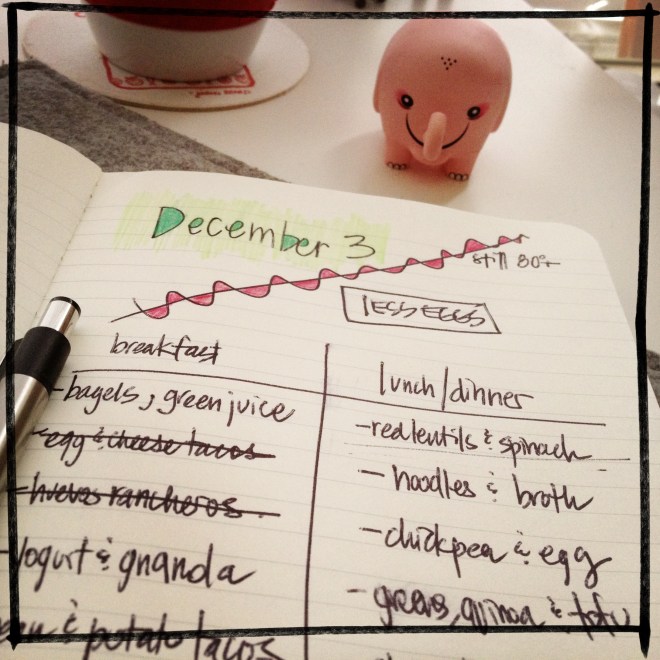 December 3
still 80°
LESS EGGS
breakfast
- bagels, green juice
- egg & cheese tacos
- huevos rancheros
- Yogurt & granola
& potato tacos
lunch/dinner
- red lentils & spinach
- noodles & broth
- chickpea & egg
- greens, quinoa & tofu